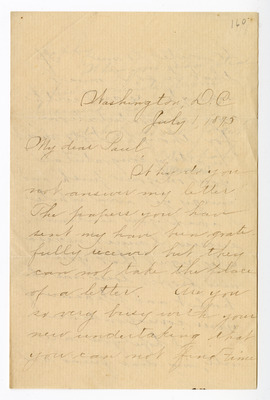 Washington, D.C.
July 1, 1890
My dear Paul
Why do you
not answer my letter
The papers you have
sent my have been grate
fully received but they
can not take the place
of a letter. Are you
so very busy with your
new undertaking that
you can not find time